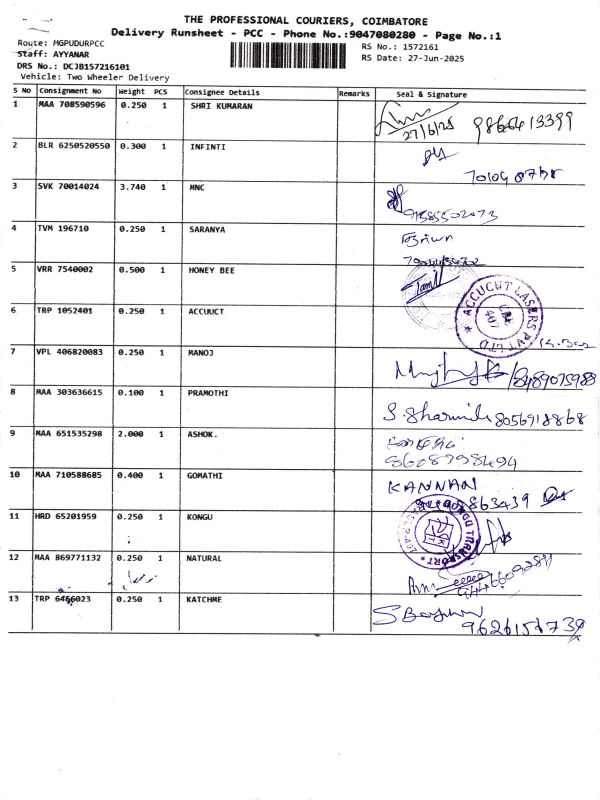 THE PROFESSIONAL COURIERS, COIMBATORE
Delivery Runsheet - PCC - Phone No.:9047080280 - Page No.:1
Route: MGPUDURPCC
RS No.: 1572161
Staff: AYYANAR
RS Date: 27-Jun-2025
DRS No.: DCJB157216101
Vehicle: Two Wheeler Delivery
S No Consignment No Weight PCS Consignee Details Remarks Seal & Signature
1 MAA 708590596 0.250 1 SHRI KUMARAN
27/6/25 9866413399
2 BLR 6250520550 0.300 1 INFINTI
3 SVK 70014024 3.740 1 MNC
9585502073
4 TVM 196710 0.250 1 SARANYA
5 VRR 7540002 0.500 1 HONEY BEE
Tamil
6 TRP 1052401 0.250 1 ACCUUCT
ACCUCUT LASERS PVT LTD
CBE
407
7 VPL 406820083 0.250 1 MANOJ
8489075988
8 MAA 303636615 0.100 1 PRAMOTHI
S. Sharmila 8056918868
9 MAA 651535298 2.000 1 ASHOK.
8608998494
10 MAA 710588685 0.400 1 GOMATHI
KANNAN
863439
11 HRD 65201959 0.250 1 KONGU
KONGU TRANSPORT
12 MAA 869771132 0.250 1 NATURAL
13 TRP 6466023 0.250 1 KATCHME
9626151739